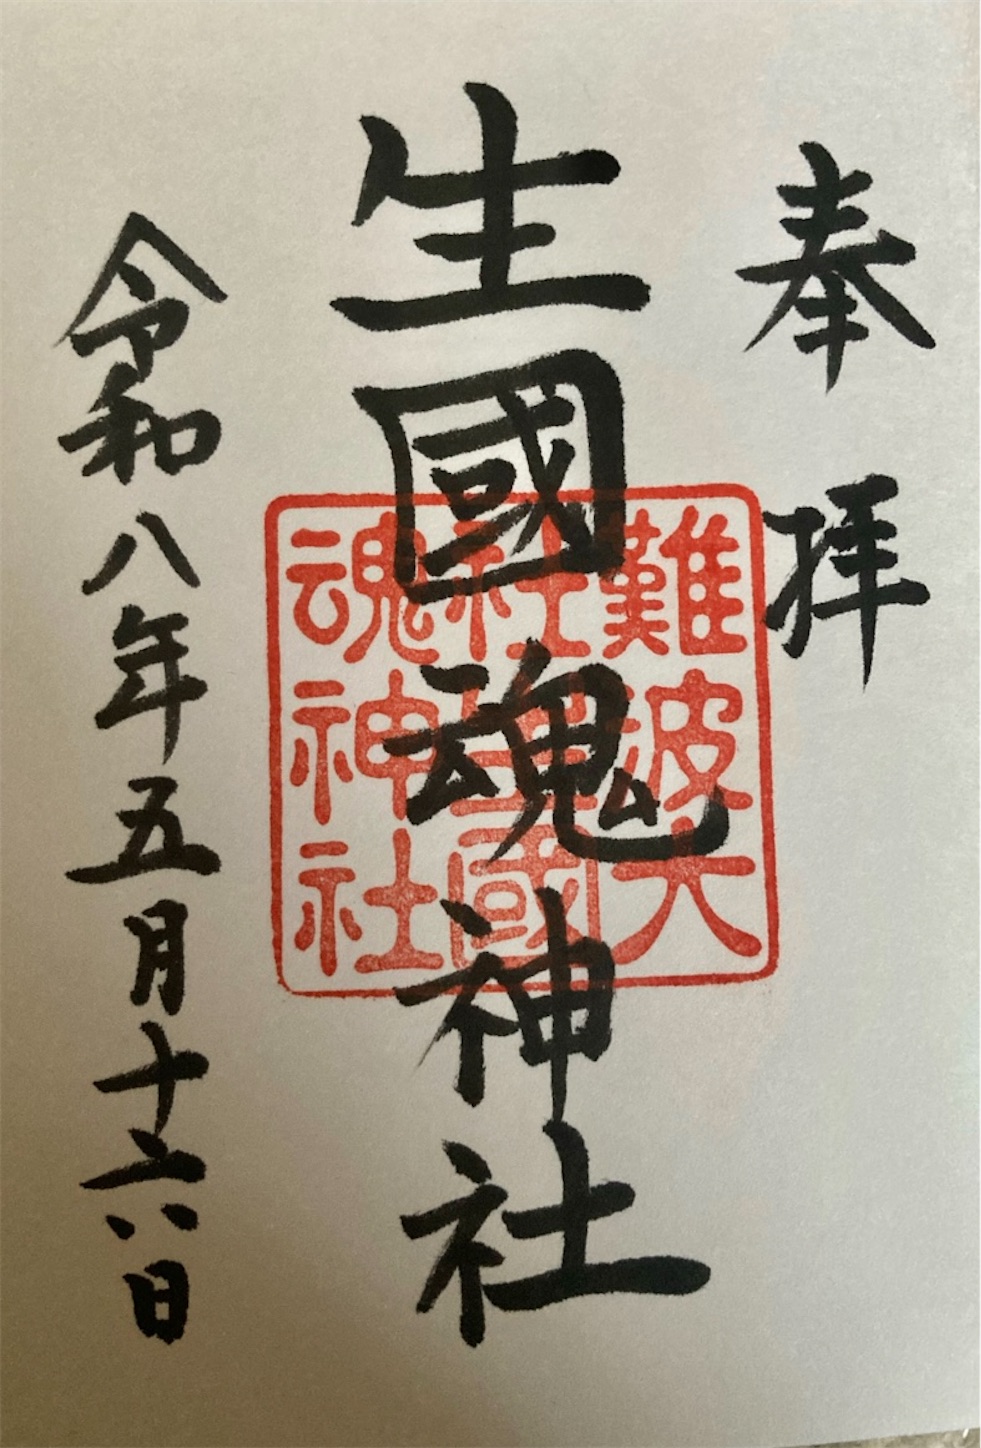 奉拝
生國魂神社
難波大
社生國
魂神社
令和八年五月十六日